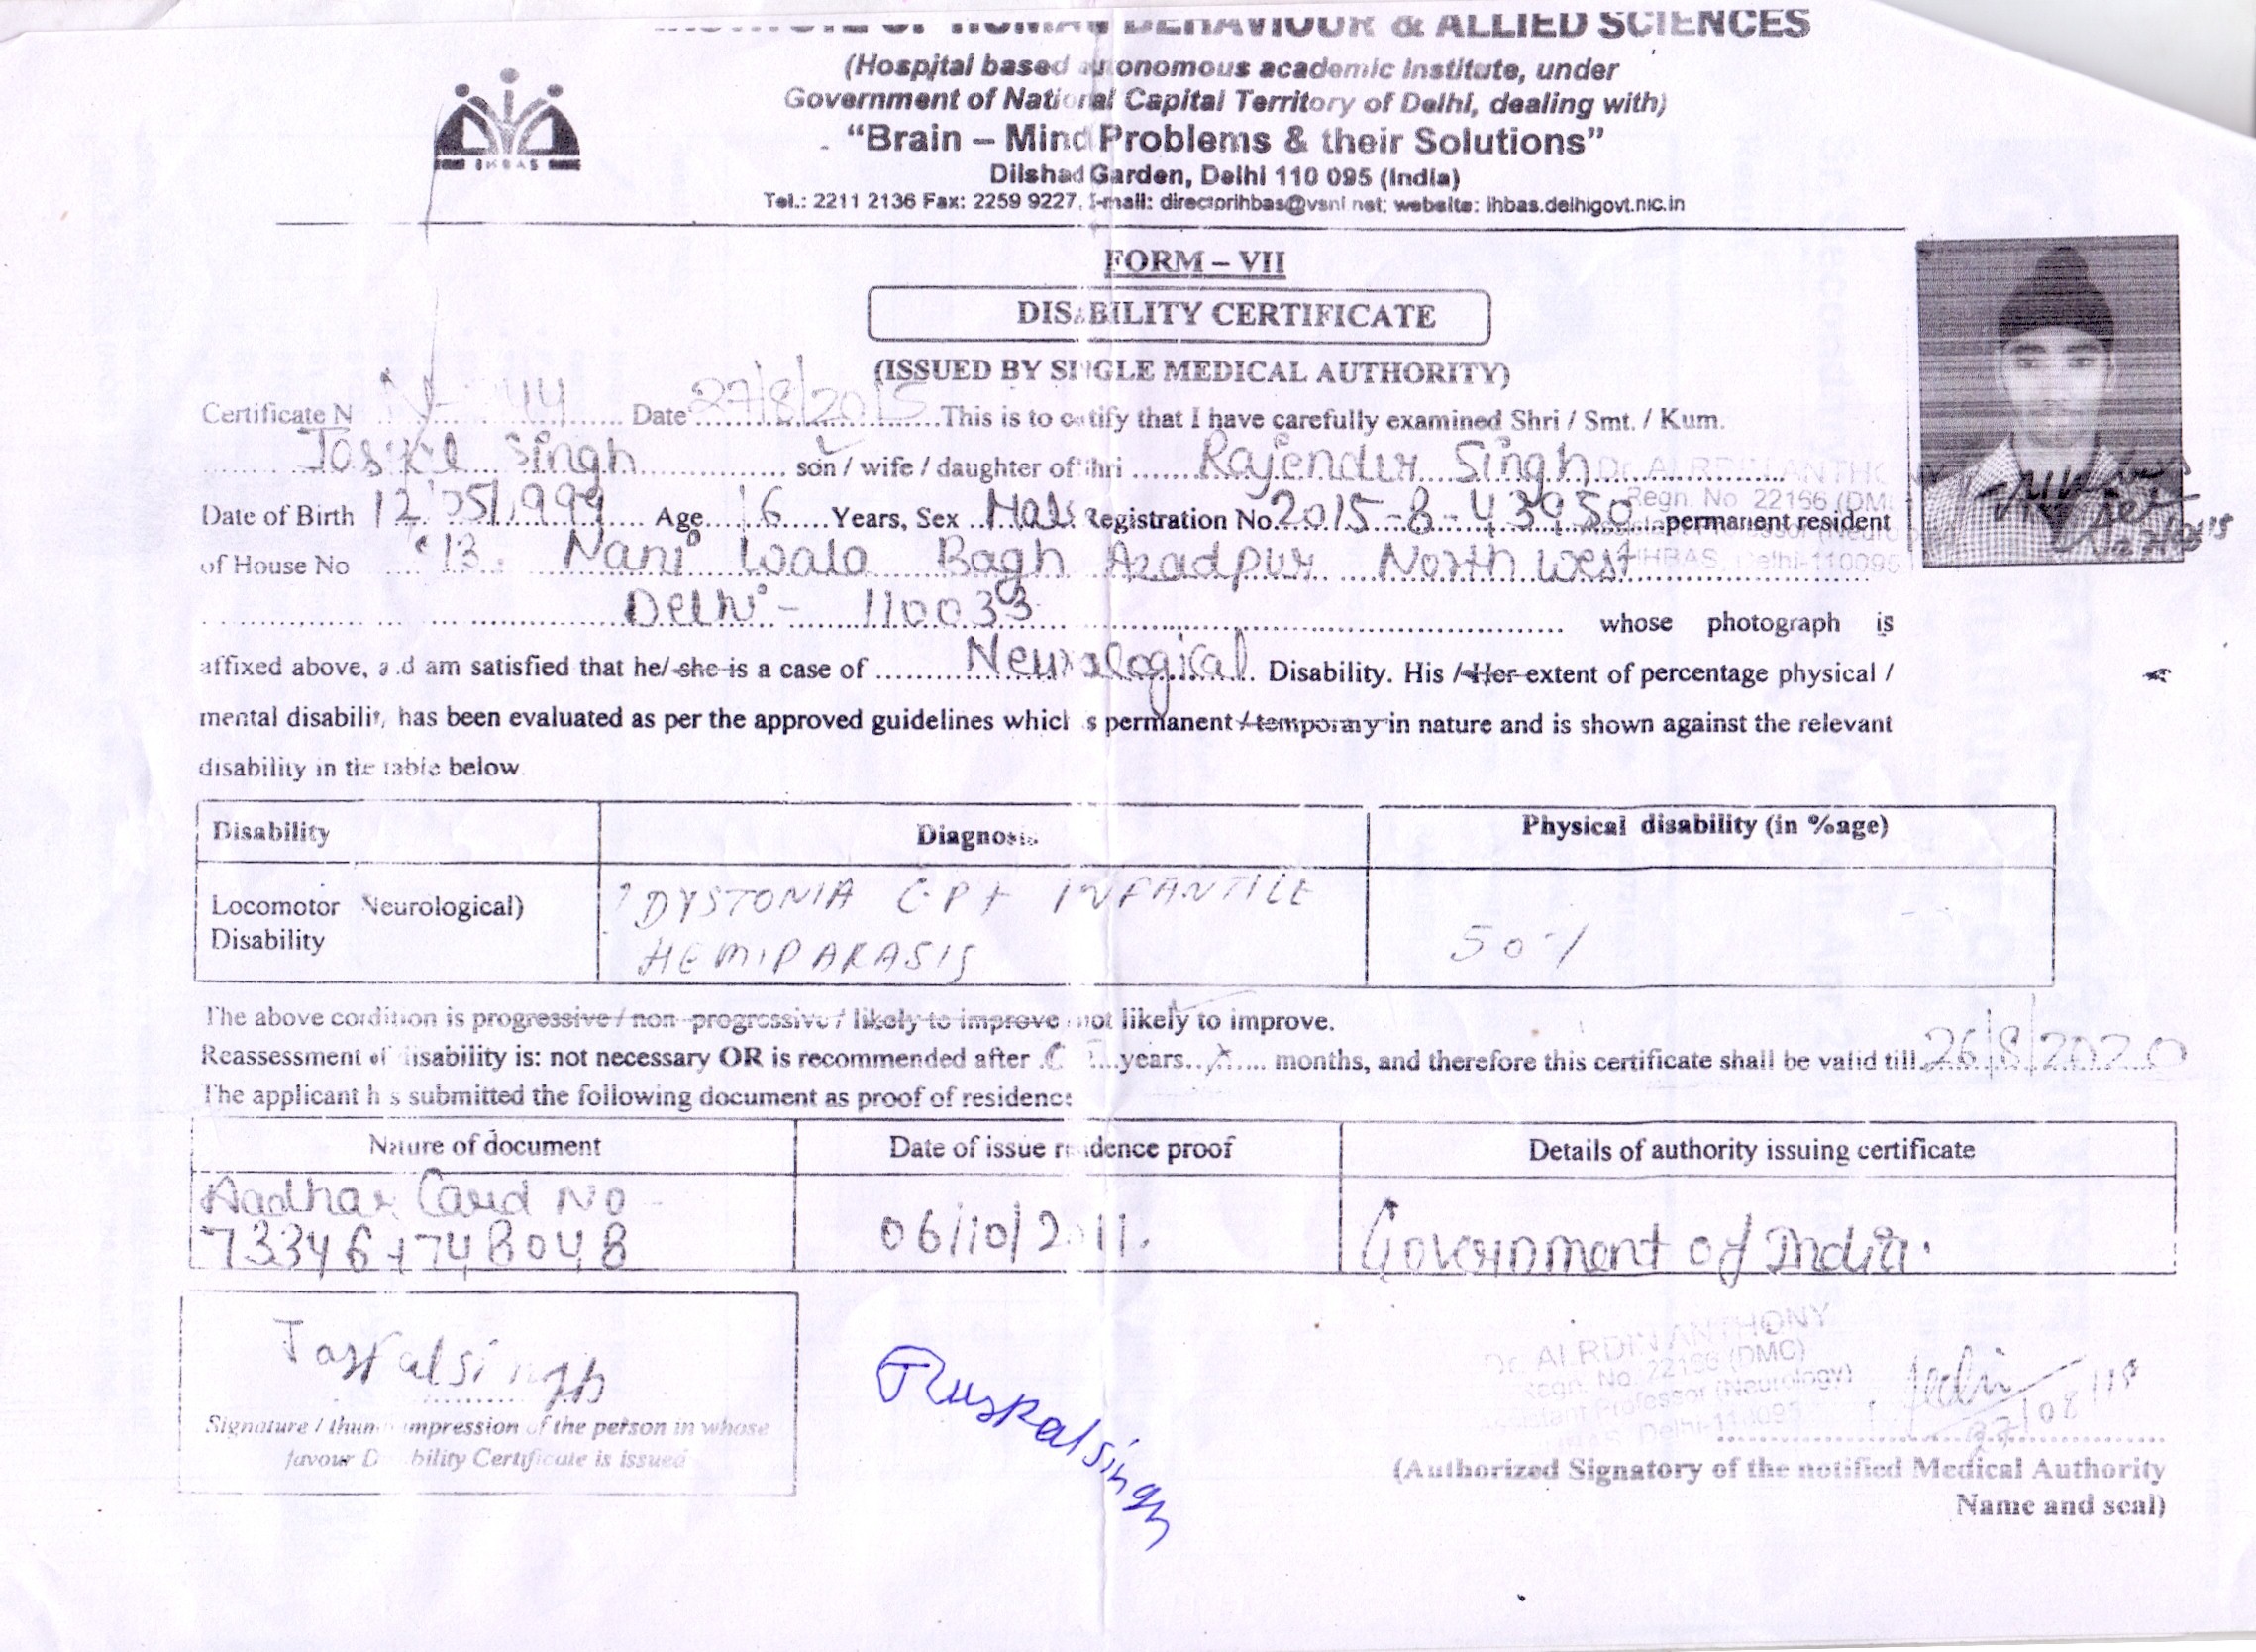 INSTITUTE OF HUMAN BEHAVIOUR & ALLIED SCIENCES
(Hospital based autonomous academic Institute, under
Government of National Capital Territory of Delhi, dealing with)
"Brain – Mind Problems & their Solutions"
IHBAS
Dilshad Garden, Delhi 110 095 (India)
Tel.: 2211 2136 Fax: 2259 9227, E-mail: directorihbas@vsnl.net; website: ihbas.delhigovt.nic.in
FORM – VII
DISABILITY CERTIFICATE
(ISSUED BY SINGLE MEDICAL AUTHORITY)
Certificate N 44 Date 27/8/2015 This is to certify that I have carefully examined Shri / Smt. / Kum.
Singh son / wife / daughter of Shri Rajender Singh
Date of Birth 12 05 1999 Age 16 Years, Sex Male Registration No. 2015-8-43950 permanent resident
of House No 13. Nani Wala Bagh Azadpur North West
Delhi - 110033 whose photograph is
affixed above, and am satisfied that he/ she is a case of Neurological Disability. His / Her extent of percentage physical /
mental disability has been evaluated as per the approved guidelines which is permanent / temporary in nature and is shown against the relevant
disability in the table below.
Disability Diagnosis Physical disability (in %age)
Locomotor Neurological) DYSTONIA C.P + INFANTILE
Disability HEMIPARASIS 50%
The above condition is progressive / non progressive / likely to improve not likely to improve.
Reassessment of disability is: not necessary OR is recommended after years months, and therefore this certificate shall be valid till 26/8/2020
The applicant has submitted the following document as proof of residence
Nature of document Date of issue residence proof Details of authority issuing certificate
Aadhar Card No 06/10/2011. Government of India.
Dr. ANTHONY
Regn. No. 22166 (DMC)
Assistant Professor (Neurology)
IHBAS, Delhi-110095
Signature / thumb impression of the person in whose
favour Disability Certificate is issued
(Authorized Signatory of the notified Medical Authority
Name and seal)